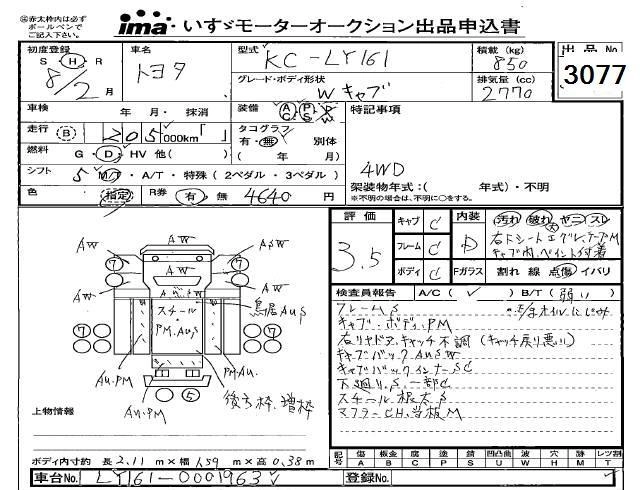 ㊟赤太枠内は必ず
ボールペンで
ご記入下さい。
ima いすゞモーターオークション出品申込書
初度登録
S・H・R
8/2月
車名
トヨタ
型式
KC-LY161
積載(kg)
850
出品No
3077
グレード・ボディ形状
Wキャブ
排気量(cc)
2770
車検 年 月・抹消
装備 AC PS PW
特記事項
走行 B 205,000km「 」
タコグラフ
有・無 別体
( 年 月)
燃料 G・D・HV 他( )
4WD
シフト 5 M/T・A/T・特殊(2ペダル・3ペダル)
架装物年式:( 年式)・不明
※不明の場合は、不明に○をする。
色 指定 R券 有・無 4640円
評価 3.5
キャブ C
フレーム C
ボディ C
内装 D
Fガラス
汚れ 破れ ヤニ スレ
右下シートエグレ、テープM
キャブ内ペイント付着
割れ 線 点傷 イバリ
検査員報告 A/C( ✓ ) B/T( 弱い )
フレームS
キャブ・ボディPM
右リヤドアキャッチ不調(キャッチ戻り悪い)
キャブバックAUSW
キャブバックインナーSC
下廻りS、一部C
スチール根太S
マフラーCH、当板M
AW
AW
AW
AW
AW
AW
AUSW
7
7
7
7
5
スチール
PM.AUS
鳥居AUS
AU.PM
PM.AU
AU.PM
後方枠、増枠
上物情報
ボディ内寸約 長 2.11m×幅 1.59m×高 0.38m
記号 傷 板金 腐 塗 錆 凹凸曲 波 穴 跡 レツ割
A B C P S U W H M T
車台No. LY161-0001963
登録No.